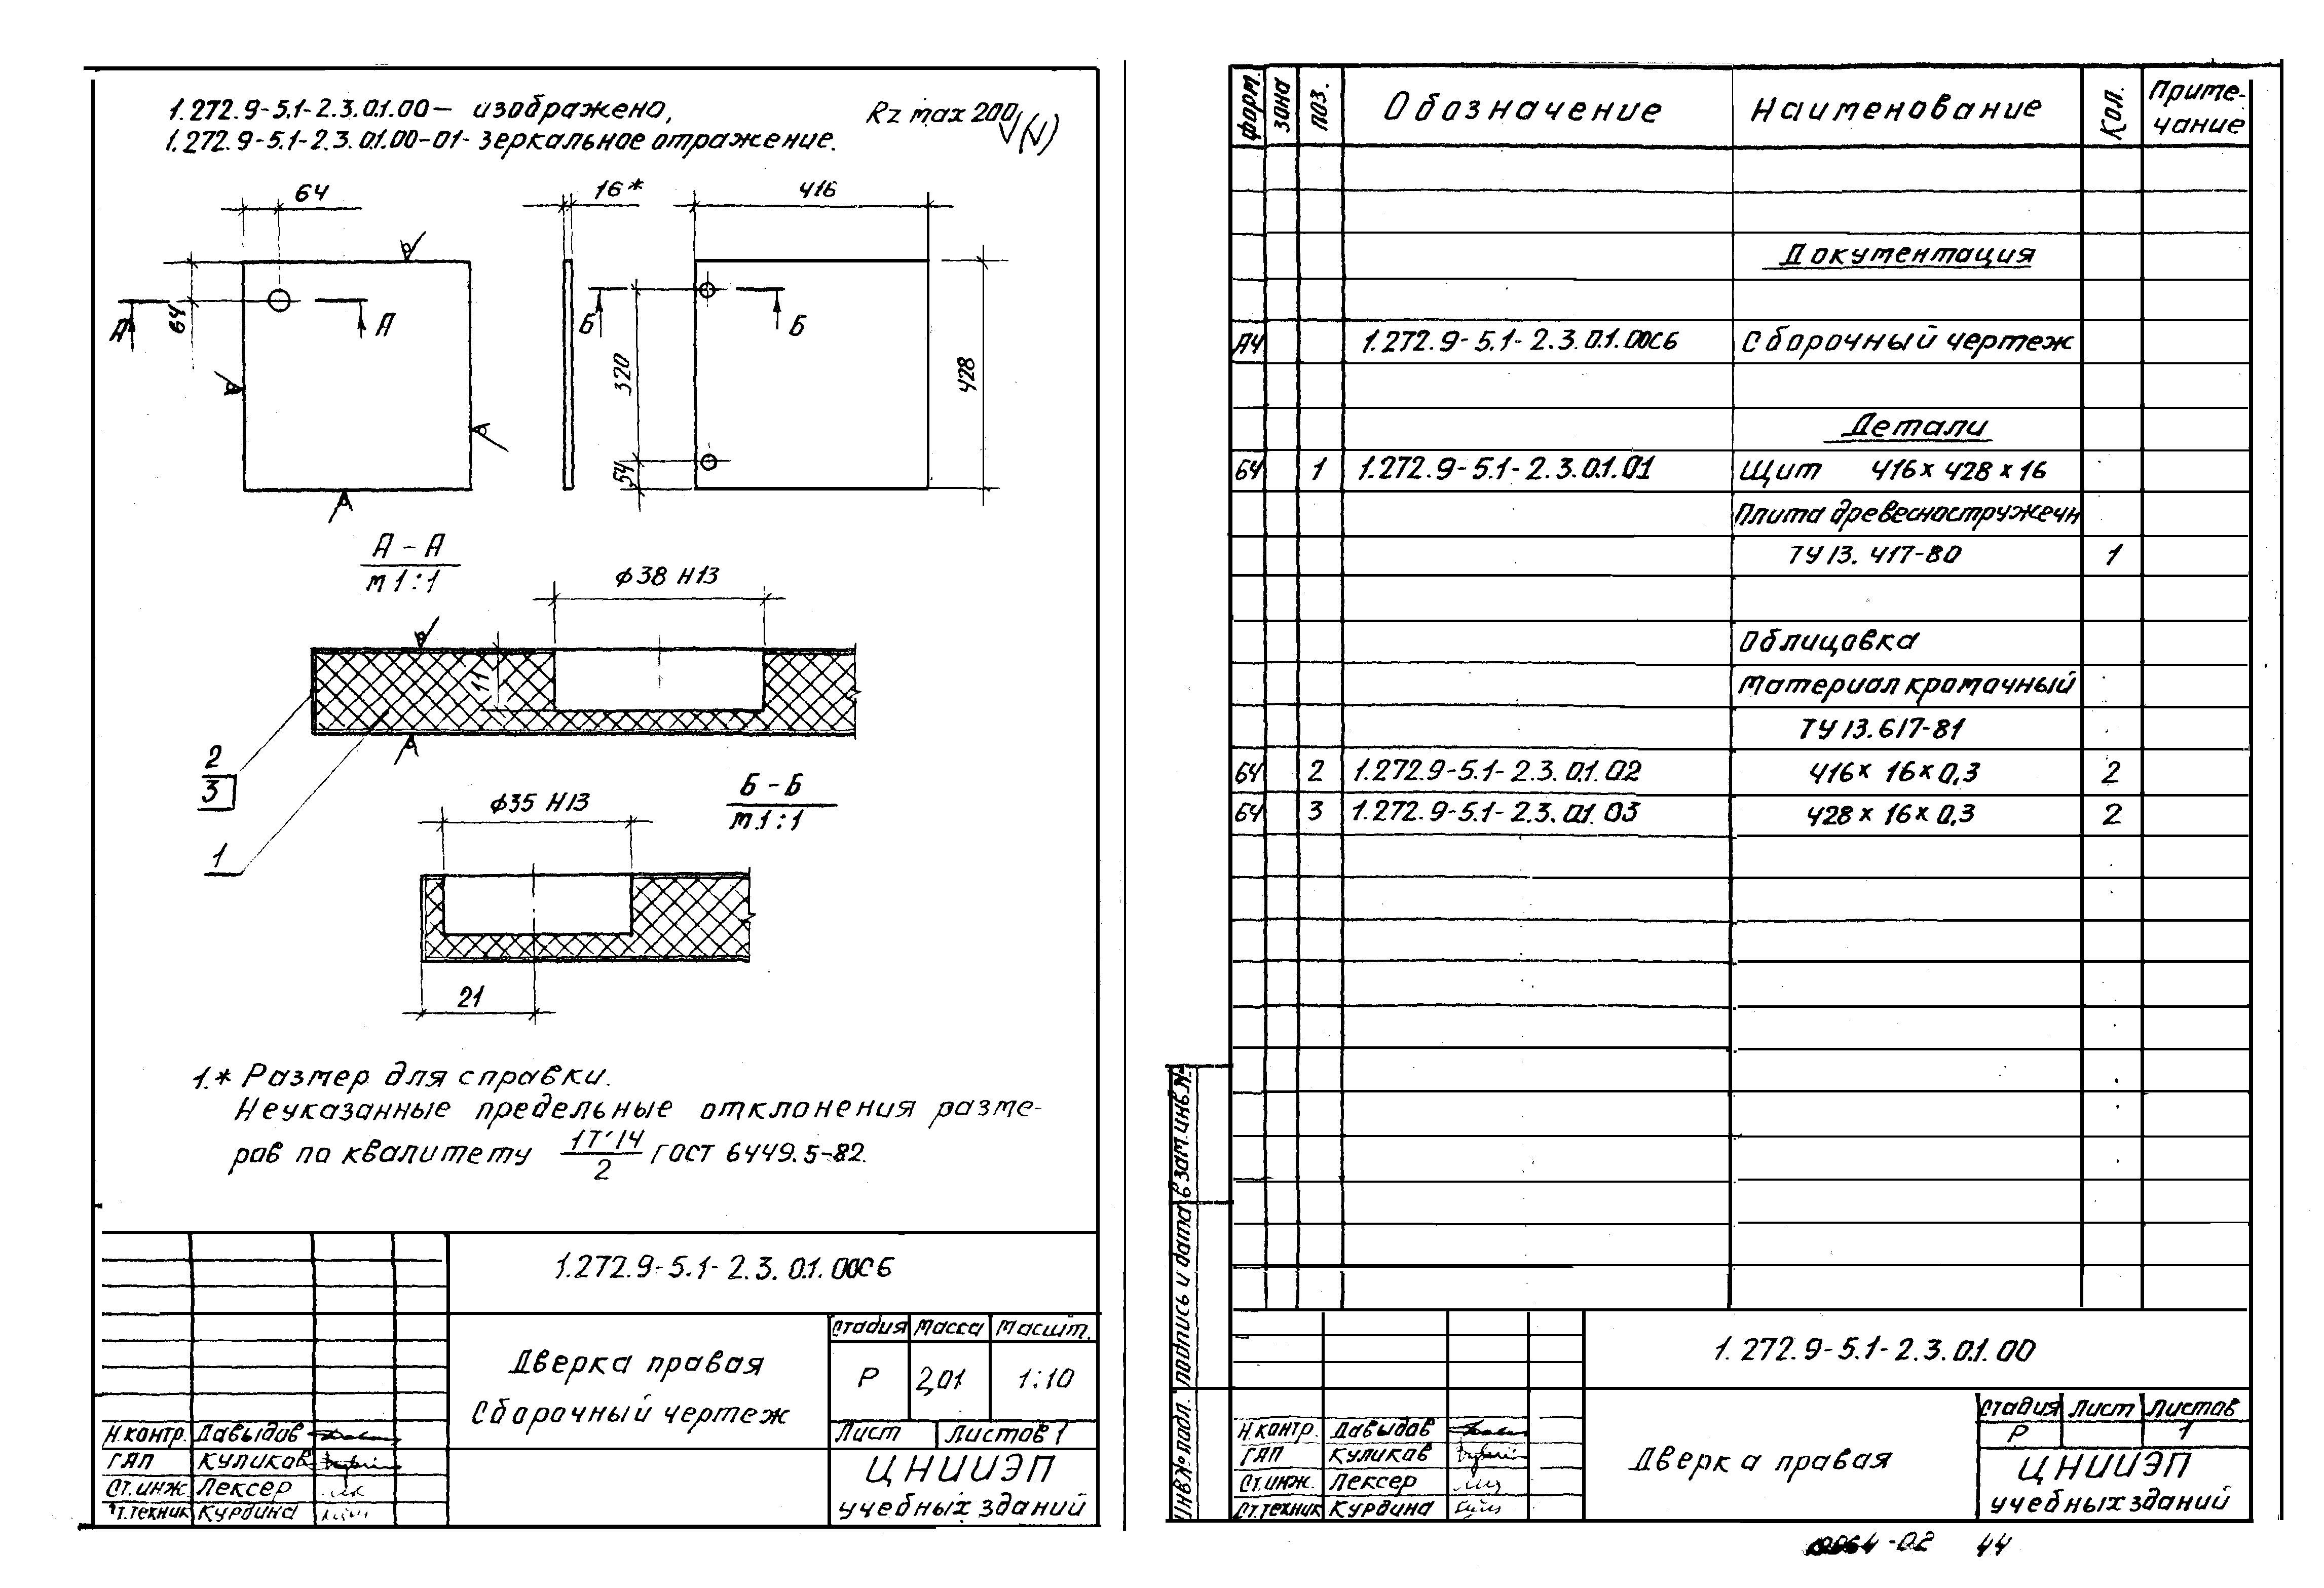 1.272.9-5.1-2.3.01.00 - изображено,
1.272.9-5.1-2.3.01.00-01- Зеркальное отражение.
Rz max 200
64
16*
416
64
А
А
Б
Б
320
54
428
А - А
м 1:1
ф38 Н13
11
2
3
1
ф35 Н13
Б - Б
м 1:1
21
1.* Размер для справки.
Неуказанные предельные отклонения разме-
ров по квалитету IT'14/2 ГОСТ 6449.5-82.
1.272.9-5.1-2.3.01.00СБ
Дверка правая
Сборочный чертеж
Стадия Масса Масшт.
Р 2,01 1:10
Лист Листов 1
Н.контр. Давыдов
ГАП Куликов
Ст.инж. Лексер
Ст.техник Курдина
ЦНИИЭП
учебных зданий
форм. зона поз. Обозначение Наименование Кол. Приме-
чание
Документация
А4 1.272.9-5.1-2.3.01.00СБ Сборочный чертеж
Детали
БЧ 1 1.272.9-5.1-2.3.01.01 Щит 416 х 428 х 16
Плита древесностружечн
ТУ 13.417-80 1
Облицовка
Материал кромочный
ТУ 13.617-81
БЧ 2 1.272.9-5.1-2.3.01.02 416 х 16 х 0,3 2
БЧ 3 1.272.9-5.1-2.3.01.03 428 х 16 х 0,3 2
Взам.инв.№
Подпись и дата
Инв.№ подл.
1.272.9-5.1-2.3.01.00
Дверка правая
Стадия Лист Листов
Р 1
Н.контр. Давыдов
ГАП Куликов
Ст.инж. Лексер
Ст.техник Курдина
ЦНИИЭП
учебных зданий
-02 44